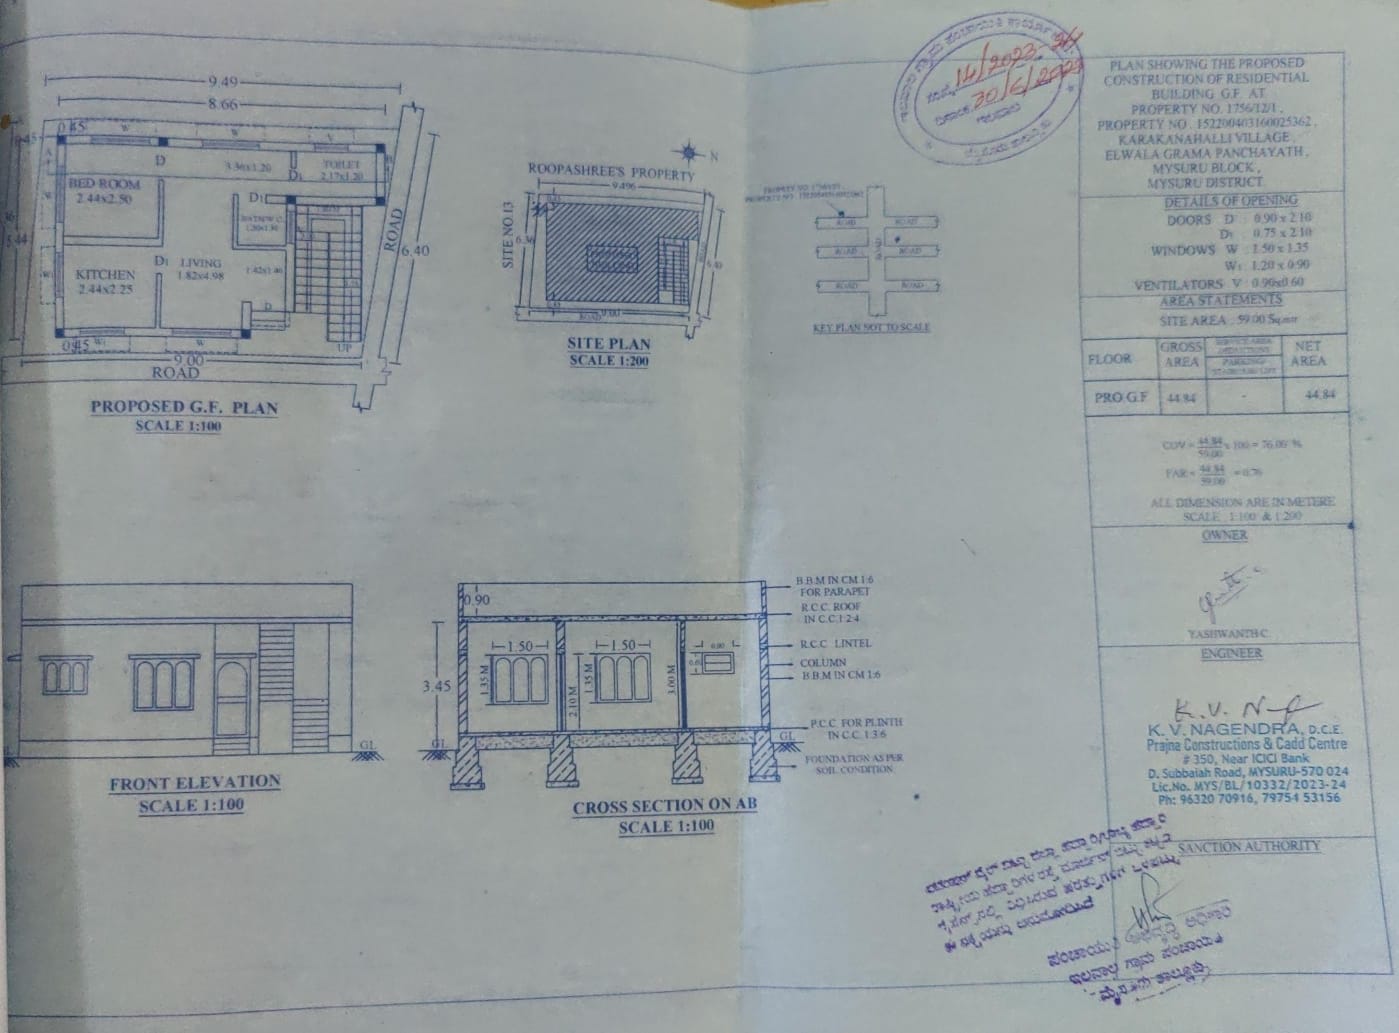 9.49
8.66
0.45
0.45
W
W
V
D
3.36x1.20
D1
TOILET
2.17x1.20
BED ROOM
2.44x2.50
D1
1.20x1.30
D1
LIVING
1.82x4.98
1.42x1.46
KITCHEN
2.44x2.25
D
0.45
W1
W
UP
5.44
ROAD
6.40
9.00
ROAD
PROPOSED G.F. PLAN
SCALE 1:100
N
ROOPASHREE'S PROPERTY
9.496
SITE NO.13
6.36
6.40
ROAD
9.00
SITE PLAN
SCALE 1:200
ROAD
ROAD
ROAD
ROAD
ROAD
ROAD
ROAD
KEY PLAN NOT TO SCALE
14/2023-24
30/6/2023
PLAN SHOWING THE PROPOSED
CONSTRUCTION OF RESIDENTIAL
BUILDING G.F. AT
PROPERTY NO. 1756/12/1,
PROPERTY NO . 152200403160025362,
KARAKANAHALLI VILLAGE,
ELWALA GRAMA PANCHAYATH,
MYSURU BLOCK,
MYSURU DISTRICT
DETAILS OF OPENING
DOORS D : 0.90 x 2.10
D1 : 0.75 x 2.10
WINDOWS W : 1.50 x 1.35
W1 : 1.20 x 0.90
VENTILATORS V : 0.90x0.60
AREA STATEMENTS
SITE AREA : 59.00 Sq.mtr
FLOOR
GROSS AREA
PARKING
NET AREA
PRO G.F 44.84 - 44.84
COV = 44.84/59.00 x 100 = 76.00 %
FAR = 44.84/59.00 = 0.76
ALL DIMENSION ARE IN METERE
SCALE 1:100 & 1:200
OWNER
YASHWANTH C.
ENGINEER
K. V. NAGENDRA, D.C.E.
Prajna Constructions & Cadd Centre
# 350, Near ICICI Bank
D. Subbaiah Road, MYSURU-570 024
Lic.No. MYS/BL/10332/2023-24
Ph: 96320 70916, 79754 53156
SANCTION AUTHORITY
GL
FRONT ELEVATION
SCALE 1:100
0.90
1.50
1.50
0.90
0.60
3.45
1.35 M
2.10 M
1.35 M
3.00 M
GL
GL
B.B.M IN CM 1:6
FOR PARAPET
R.C.C. ROOF
IN C.C.1:2:4
R.C.C LINTEL
COLUMN
B.B.M IN CM 1:6
P.C.C FOR PLINTH
IN C.C.1:3:6
FOUNDATION AS PER
SOIL CONDITION
CROSS SECTION ON AB
SCALE 1:100